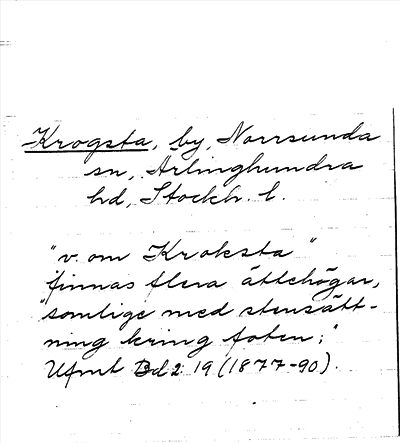 Krogsta, by, Norrsunda
sn, Ärlinghundra
hd, Stockh. l.
"v. om Kroksta"
finnas flera ättehögar,
"somlige med stensätt-
ning kring foten;"
Ufmt Bd 2 19 (1877-90).